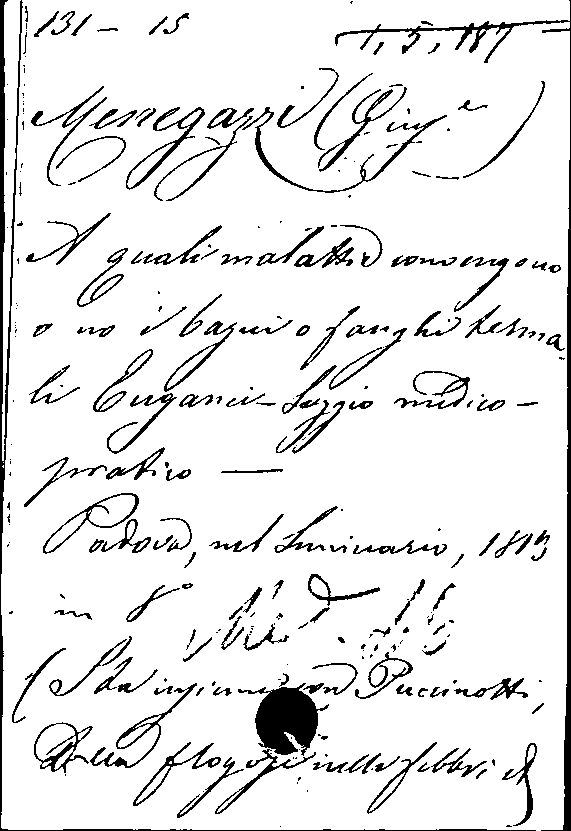 131 - 15 1, 5, 187
Menegazzi (Gius.e)
A quali malattie convengono
o no i bagni o fanghi terma-
li Euganei - Saggio medico-
pratico —
Padova, nel Seminario, 18
in 8°
(Sta insieme con Puccinotti,
Della flogosi nelle febbri